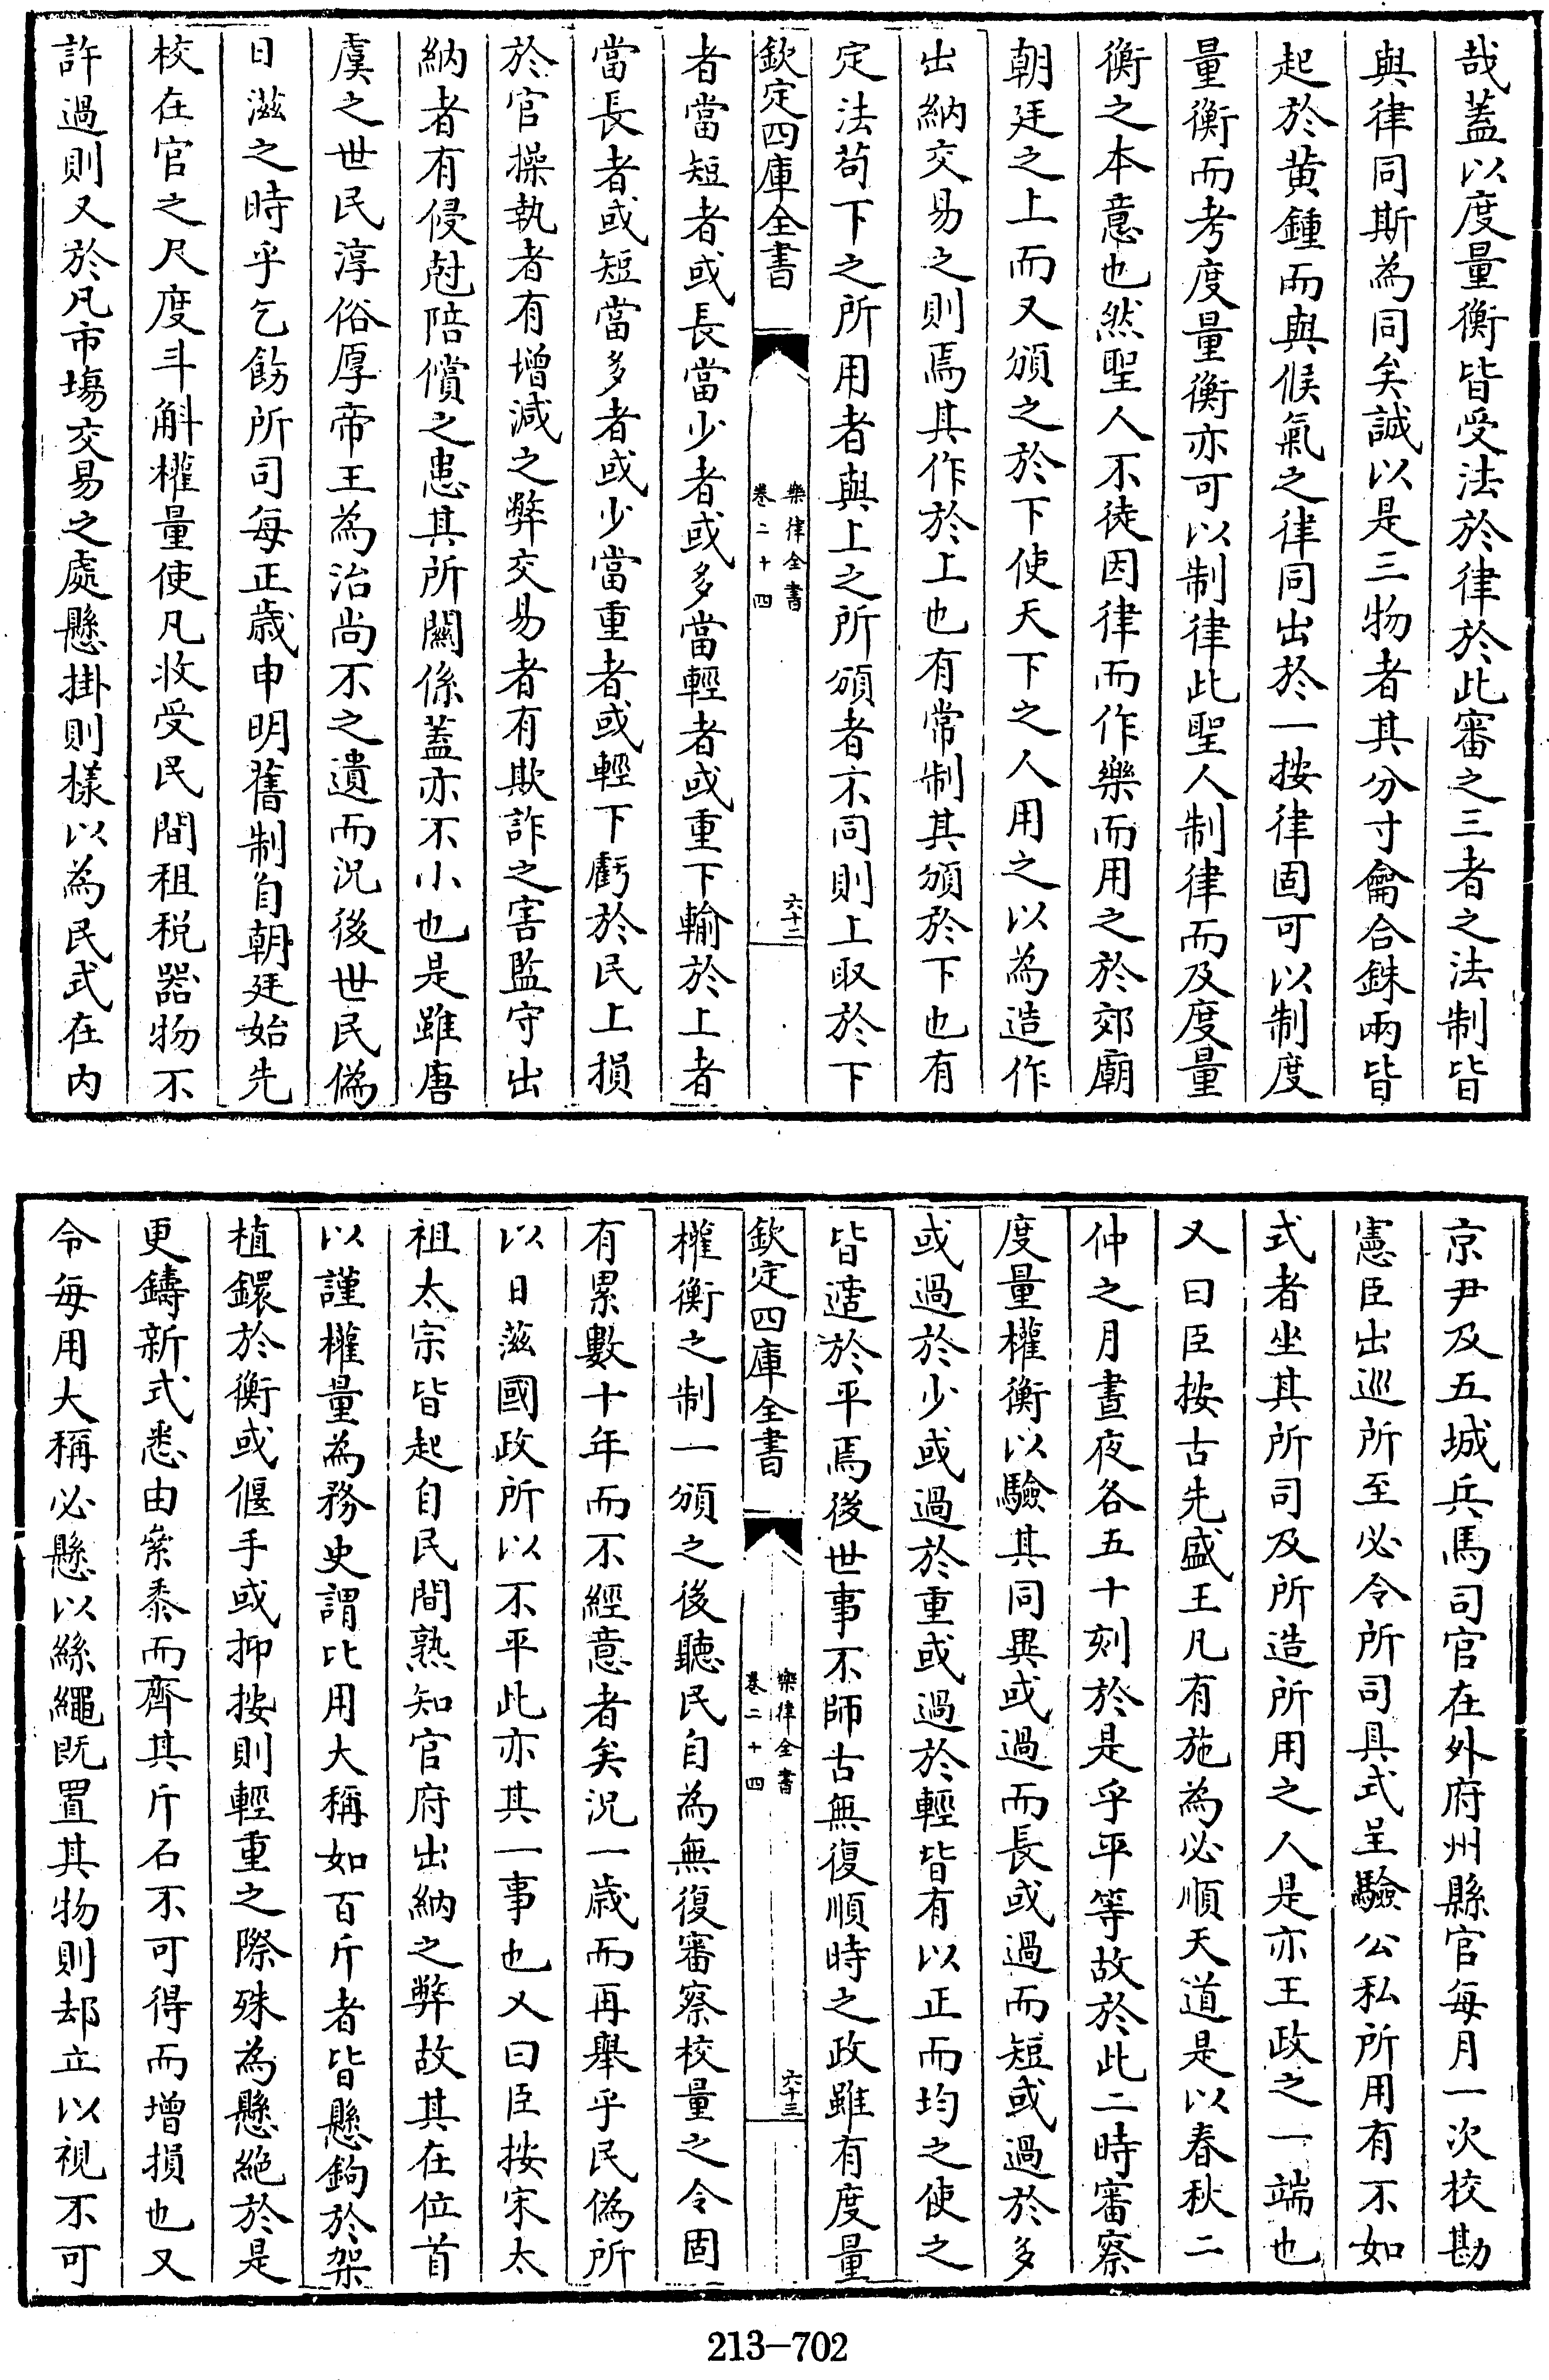 哉蓋以度量衡皆受法於律於此審之三者之法制皆
與律同斯為同矣誠以是三物者其分寸龠合銖兩皆
起於黄鍾而與候氣之律同出於一按律固可以制度
量衡而考度量衡亦可以制律此聖人制律而及度量
衡之本意也然聖人不徒因律而作樂而用之於郊廟
朝廷之上而又頒之於下使天下之人用之以為造作
出納交易之則焉其作於上也有常制其頒於下也有
定法苟下之所用者與上之所頒者不同則上取於下
欽定四庫全書
樂律全書
卷二十四
六十二
者當短者或長當少者或多當輕者或重下輸於上者
當長者或短當多者或少當重者或輕下虧於民上損
於官操執者有增減之弊交易者有欺詐之害監守出
納者有侵尅陪償之患其所關係蓋亦不小也是雖唐
虞之世民淳俗厚帝王為治尚不之遺而況後世民偽
日滋之時乎乞飭所司每正歲申明舊制自朝廷始先
校在官之尺度斗斛權量使凡收受民間租税器物不
許過則又於凡市塲交易之處懸掛則樣以為民式在内
京尹及五城兵馬司官在外府州縣官每月一次校勘
憲臣出巡所至必令所司具式呈驗公私所用有不如
式者坐其所司及所造所用之人是亦王政之一端也
又曰臣按古先盛王凡有施為必順天道是以春秋二
仲之月晝夜各五十刻於是乎平等故於此二時審察
度量權衡以驗其同異或過而長或過而短或過於多
或過於少或過於重或過於輕皆有以正而均之使之
皆適於平焉後世事不師古無復順時之政雖有度量
欽定四庫全書
樂律全書
卷二十四
六十三
權衡之制一頒之後聽民自為無復審察校量之令固
有累數十年而不經意者矣況一歲而再舉乎民偽所
以日滋國政所以不平此亦其一事也又曰臣按宋太
祖太宗皆起自民間熟知官府出納之弊故其在位首
以謹權量為務史謂比用大稱如百斤者皆懸鉤於架
植鐶於衡或偃手或抑按則輕重之際殊為懸絶於是
更鑄新式悉由絫黍而齊其斤石不可得而增損也又
令每用大稱必懸以絲繩既置其物則却立以視不可
213-702